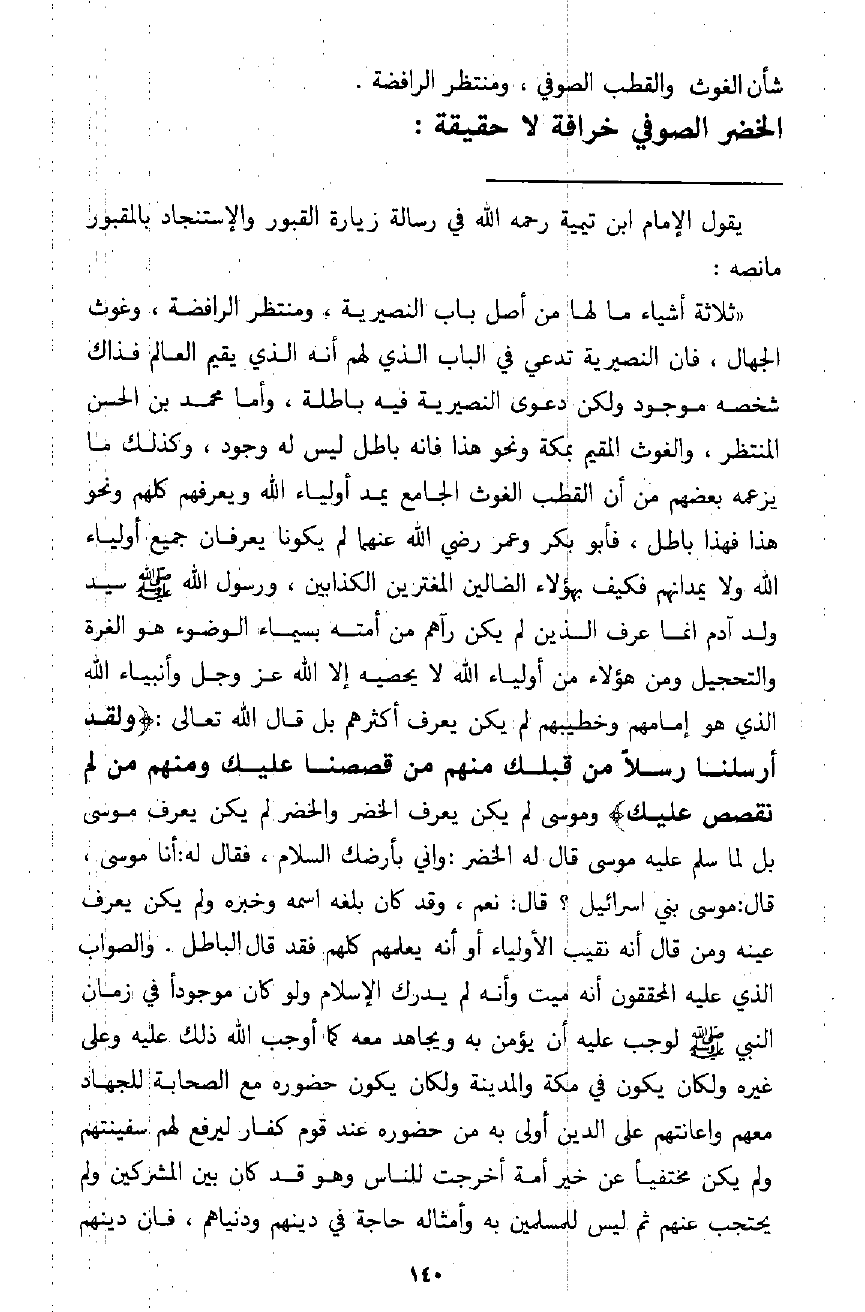 شأن الغوث والقطب الصوفي ، ومنتظر الرافضة .
الخضر الصوفي خرافة لا حقيقة :
يقول الإمام ابن تيمية رحمه الله في رسالة زيارة القبور والإستنجاد بالمقبور
مانصه :
«ثلاثة أشياء ما لها من أصل باب النصيرية ، ومنتظر الرافضة ، وغوث
الجهال ، فان النصيرية تدعي في الباب الذي لهم أنه الذي يقيم العالم فذاك
شخصه موجود ولكن دعوى النصيرية فيه باطلة ، وأما محمد بن الحسن
المنتظر ، والغوث المقيم بمكة ونحو هذا فانه باطل ليس له وجود ، وكذلك ما
يزعمه بعضهم من أن القطب الغوث الجامع يمد أولياء الله ويعرفهم كلهم ونحو
هذا فهذا باطل ، فأبو بكر وعمر رضي الله عنهما لم يكونا يعرفان جميع أولياء
الله ولا يمدانهم فكيف بهؤلاء الضالين المغترين الكذابين ، ورسول الله ﷺ سيد
ولد آدم انما عرف الذين لم يكن رآهم من أمته بسيماء الوضوء هو الغرة
والتحجيل ومن هؤلاء من أولياء الله لا يحصيه إلا الله عز وجل وأنبياء الله
الذي هو إمامهم وخطيبهم لم يكن يعرف أكثرهم بل قال الله تعالى :﴿ولقد
أرسلنا رسلاً من قبلك منهم من قصصنا عليك ومنهم من لم
نقصص عليك﴾ وموسى لم يكن يعرف الخضر والخضر لم يكن يعرف موسى
بل لما سلم عليه موسى قال له الخضر :واني بأرضك السلام ، فقال له:أنا موسى ،
قال:موسى بني اسرائيل ؟ قال: نعم ، وقد كان بلغه اسمه وخبره ولم يكن يعرف
عينه ومن قال أنه نقيب الأولياء أو أنه يعلمهم كلهم فقد قال الباطل . والصواب
الذي عليه المحققون أنه ميت وأنه لم يدرك الإسلام ولو كان موجوداً في زمان
النبي ﷺ لوجب عليه أن يؤمن به ويجاهد معه كما أوجب الله ذلك عليه وعلى
غيره ولكان يكون في مكة والمدينة ولكان يكون حضوره مع الصحابة للجهاد
معهم واعانتهم على الدين أولى به من حضوره عند قوم كفار ليرفع لهم سفينتهم
ولم يكن مختفياً عن خير أمة أخرجت للناس وهو قد كان بين المشركين ولم
يحتجب عنهم ثم ليس للمسلمين به وأمثاله حاجة في دينهم ودنياهم ، فان دينهم
١٤٠